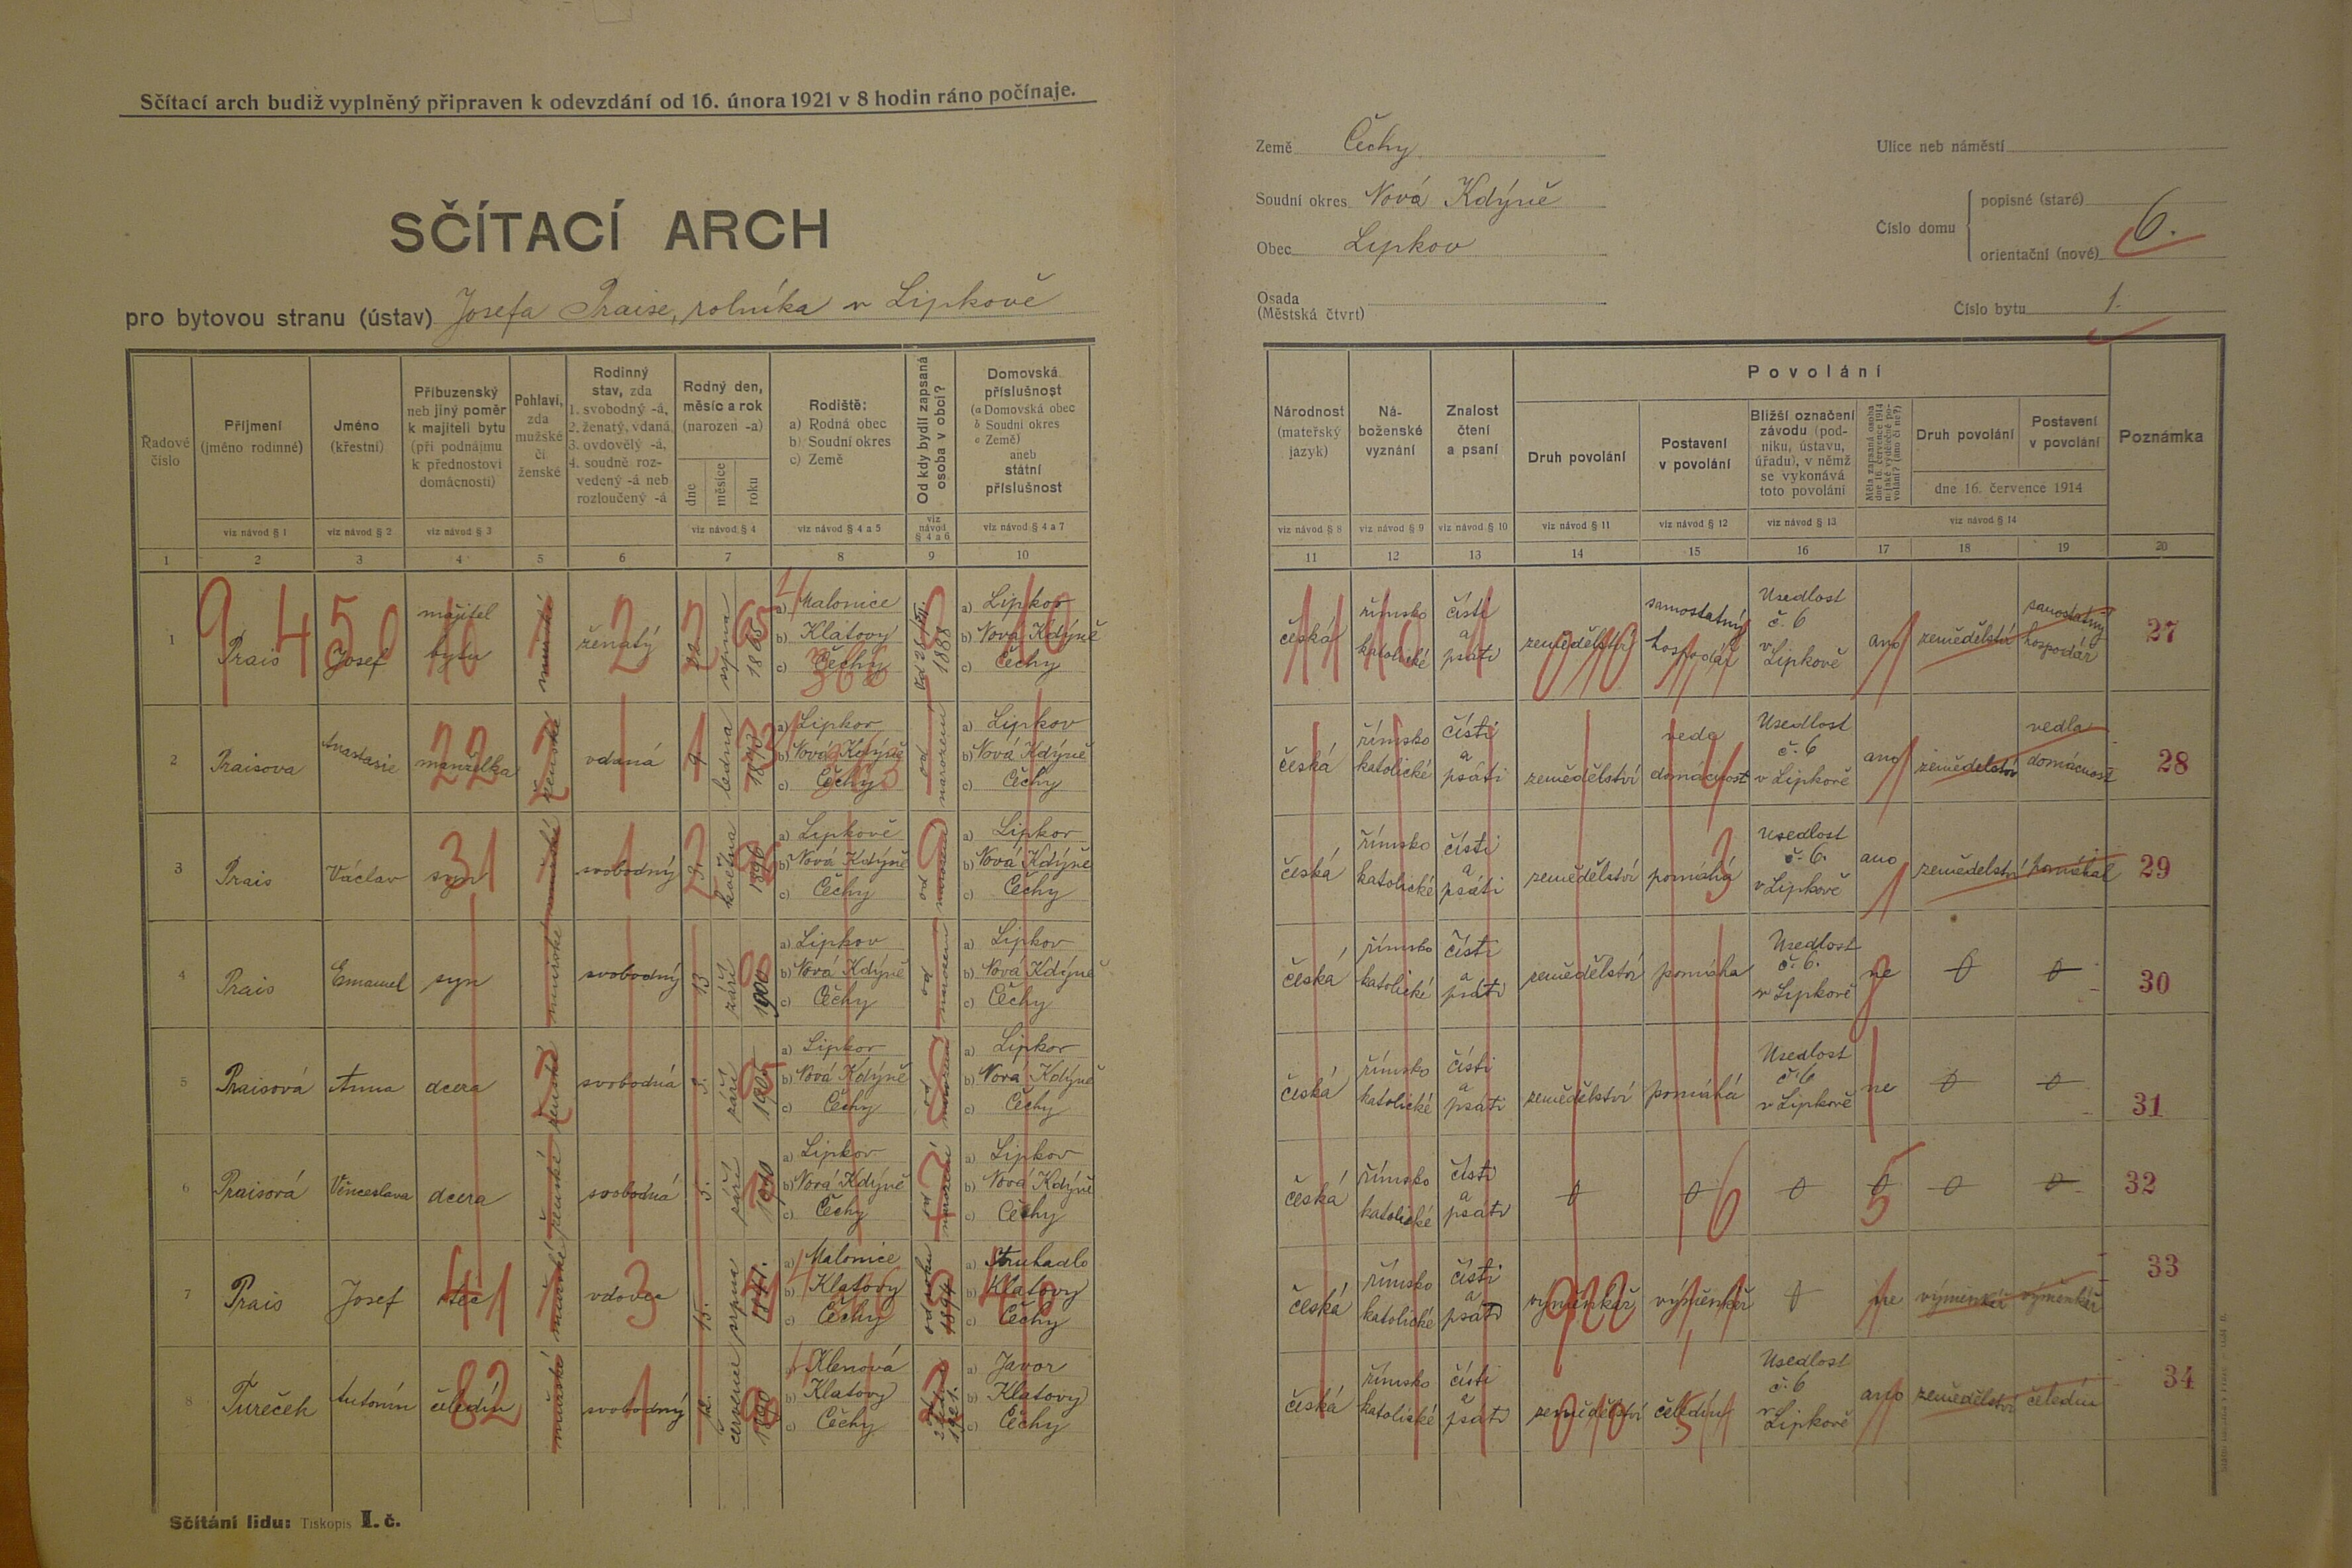 Sčítací arch budiž vyplněný připraven k odevzdání od 16. února 1921 v 8 hodin ráno počínaje.
SČÍTACÍ ARCH
pro bytovou stranu (ústav) Josefa Praise, rolníka v Lipkově
Země Čechy
Soudní okres Nová Kdýně
Obec Lipkov
Osada
(Městská čtvrť)
Ulice neb náměstí
Číslo domu
popisné (staré)
orientační (nové)
6.
Číslo bytu 1.
Řadové číslo
Příjmení (jméno rodinné)
Jméno (křestní)
Příbuzenský neb jiný poměr k majiteli bytu (při podnájmu k přednostovi domácnosti)
Pohlaví, zda mužské či ženské
Rodinný stav, zda
1. svobodný -á,
2. ženatý, vdaná,
3. ovdovělý -á,
4. soudně roz-
vedený -á neb
rozloučený -á
Rodný den, měsíc a rok (narozen -a)
dne měsíce roku
Rodiště:
a) Rodná obec
b) Soudní okres
c) Země
Od kdy bydlí zapsaná osoba v obci?
Domovská příslušnost
(a Domovská obec
b Soudní okres
c Země)
aneb
státní příslušnost
Národnost (mateřský jazyk)
Ná-
boženské
vyznání
Znalost čtení a psaní
Povolání
Druh povolání
Postavení v povolání
Bližší označení závodu (pod-
niku, ústavu, úřadu), v němž se vykonává toto povolání
Měla zapsaná osoba dne 16. července 1914 nějaké výdělečné po-
volání? (ano či ne?)
Druh povolání
Postavení v povolání
dne 16. července 1914
Poznámka
viz návod § 1 viz návod § 2 viz návod § 3 viz návod § 4 viz návod § 4 a 5 viz návod § 4 a 6 viz návod § 4 a 7
viz návod § 8 viz návod § 9 viz návod § 10 viz návod § 11 viz návod § 12 viz návod § 13 viz návod § 14
1 2 3 4 5 6 7 8 9 10
11 12 13 14 15 16 17 18 19 20
1 Prais Josef majitel bytu mužské ženatý srpna 1865 a) Malonice b) Klatovy c) Čechy 1888 a) Lipkov b) Nová Kdýně c) Čechy
česká římsko katolické čísti a psáti zemědělství samostatný hospodář Usedlost č. 6 v Lipkově ano zemědělství samostatný hospodář 27
2 Praisova Anastasie manželka ženské vdaná 9. ledna 1873 a) Lipkov b) Nová Kdýně c) Čechy od narození a) Lipkov b) Nová Kdýně c) Čechy
česká římsko katolické čísti a psáti zemědělství vede domácnost Usedlost č. 6 v Lipkově ano zemědělství vedla domácnost 28
3 Prais Václav syn mužské svobodný 3. května 1896 a) Lipkově b) Nová Kdýně c) Čechy od narození a) Lipkov b) Nová Kdýně c) Čechy
česká římsko katolické čísti a psáti zemědělství pomáhá Usedlost č. 6. v Lipkově ano zemědělství pomáhal 29
4 Prais Emanuel syn mužské svobodný 13 září 1900 a) Lipkov b) Nová Kdýně c) Čechy od narození a) Lipkov b) Nová Kdýně c) Čechy
česká římsko katolické čísti a psáti zemědělství pomáha Usedlost č. 6. v Lipkově ne 0 0 30
5 Praisová Anna dcera ženské svobodná září a) Lipkov b) Nová Kdýně c) Čechy od narození a) Lipkov b) Nová Kdýně c) Čechy
česká římsko katolické čísti a psáti zemědělství pomáhá Usedlost č. 6 v Lipkově ne 0 0 31
6 Praisová Věnceslava dcera ženské svobodná 5. září 1910 a) Lipkov b) Nová Kdýně c) Čechy od narození a) Lipkov b) Nová Kdýně c) Čechy
česká římsko katolické čísti a psáti 0 0 0 0 0 0 32
7 Prais Josef otec mužské vdovec 15. srpna 1841. a) Malonice b) Klatovy c) Čechy od roku 1894 a) Struhadlo b) Klatovy c) Čechy
česká římsko katolické čísti a psáti výměnkář výměnkář 0 ne výměnkář výměnkář 33
8 Tureček Antonín čeledín mužské svobodný 12. července 1890 a) Klenová b) Klatovy c) Čechy 1921. a) Javor b) Klatovy c) Čechy
česká římsko katolické čísti a psáti zemědělství čeledín Usedlost č. 6 v Lipkově ano zemědělství čeledín 34
Sčítání lidu: Tiskopis I. č.